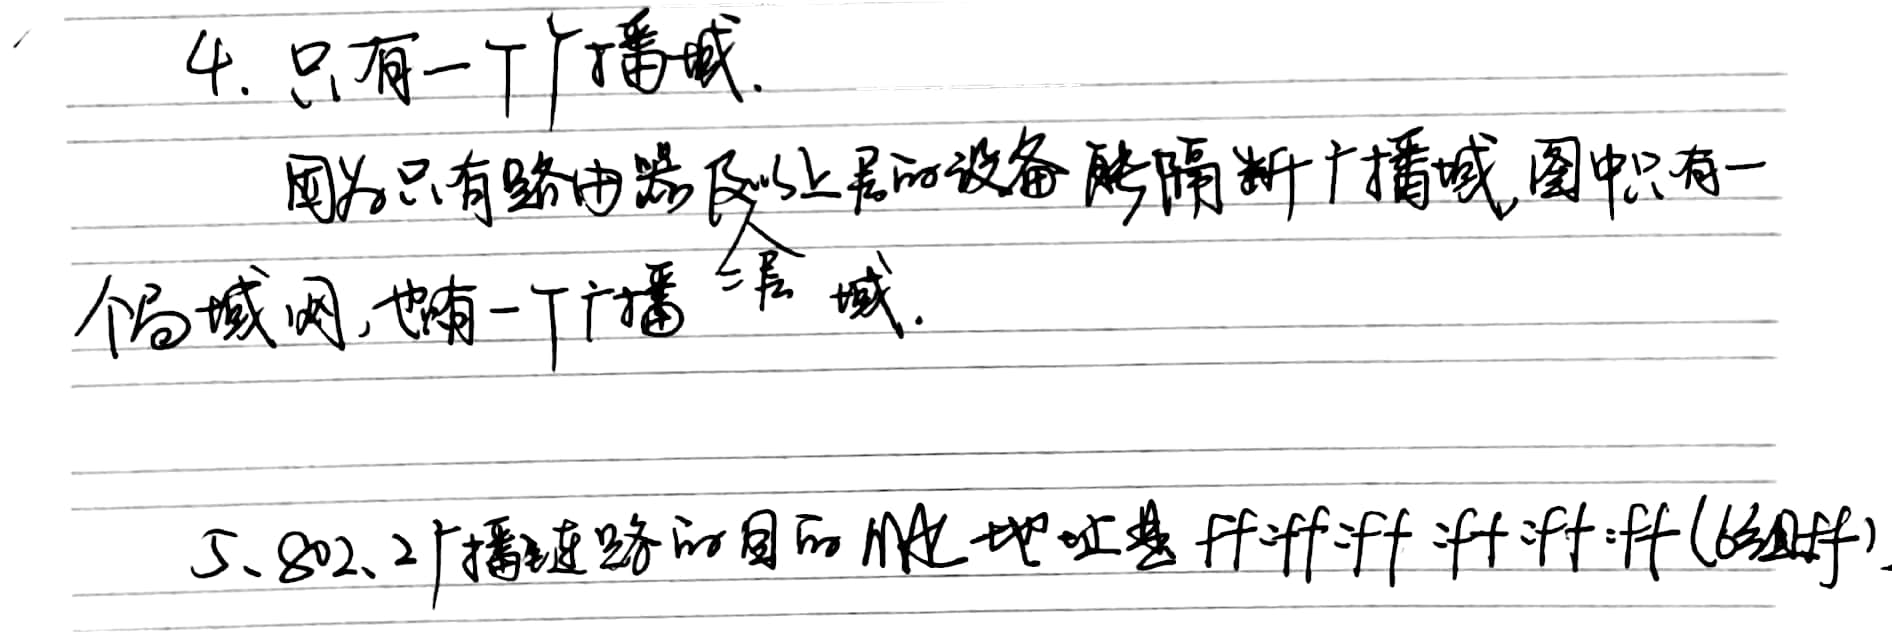 4. 只有一个广播域.
因为只有路由器及三层以上层的设备能隔断广播域,图中只有一
个局域网,也有一个广播域.
5、802、2广播链路的目的MAC地址是ff:ff:ff:ff:ff:ff(6组ff)